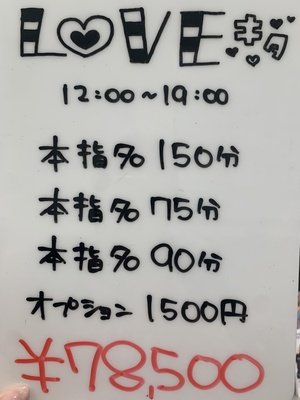 LOVE割
12:00~19:00
本指名 150分
本指名 75分
本指名 90分
オプション 1500円
¥78,500